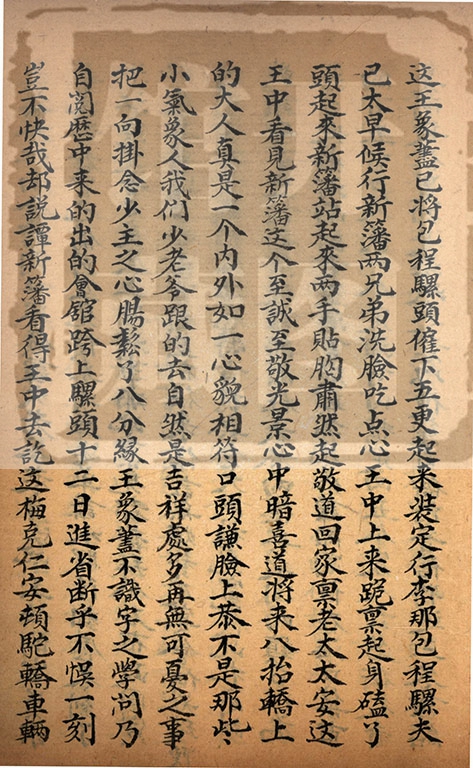 这王象藎已将包程騾頭僱下五更起来装定行李那包程騾夫
已太早候行新籓两兄弟洗臉吃点心王中上来跪禀起身磕了
頭起来新籓站起来两手貼胸肅然起敬道回家禀老太太安这
王中看見新籓这个至誠至敬光景心中暗喜道将来八抬轎上
的大人真是一个内外如一心貌相符口頭謙臉上恭不是那些
小氣象人我们少老爷跟的去自然是吉祥處多再無可憂之事
把一向掛念少主之心腸鬆了八分緣王象藎不識字之學問乃
自閲歴中来的出的會舘跨上騾頭十二日進省断乎不悞一刻
豈不快哉却説譚新籓看得王中去訖这梅克仁安頓駝轎車輛